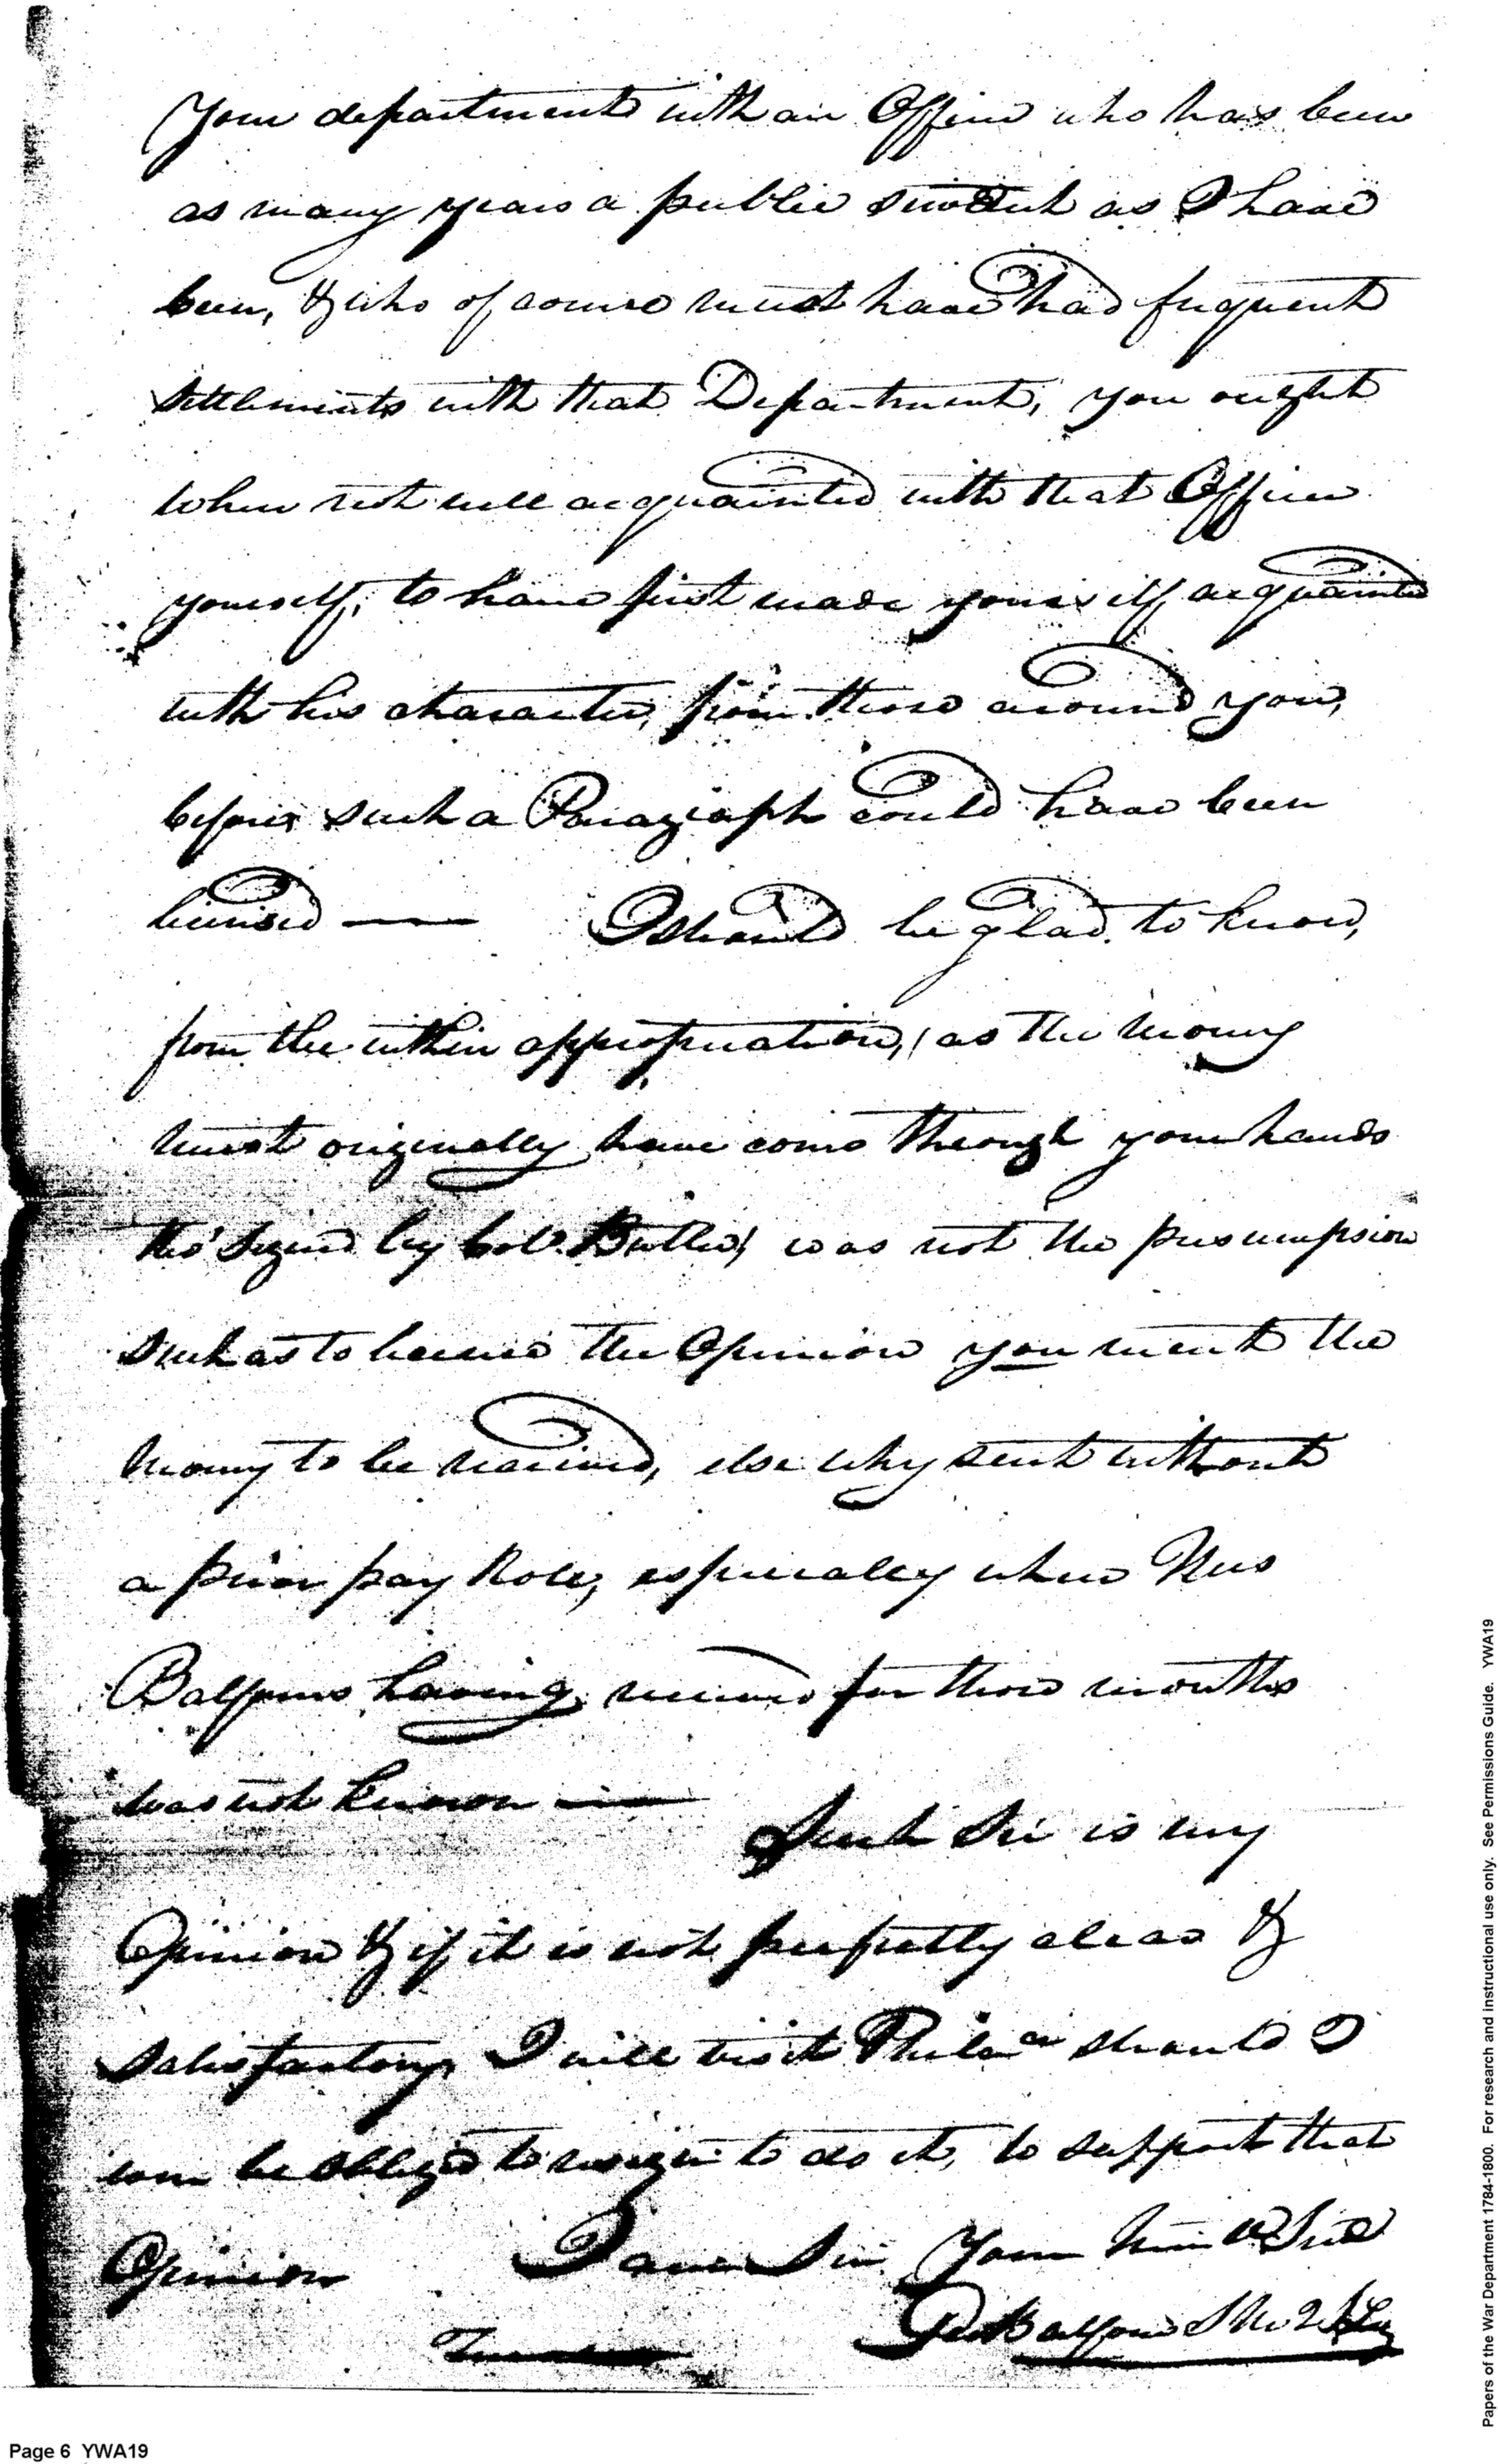 Your department with an Officer who has been
as many years a public servant as I have
been, & who of course must have had frequent
settlements with that Department, you ought
when not well acquainted with that Officer
yourself, to have first made yourself acquainted
with his character, from those around you,
before such a Paragraph could have been
licensed — I should be glad to know,
from the within appropriation, (as the money
must originally have come through your hands
tho' signed by Col. Butler) was not the presumpsion
such as to license the Opinion you ment the
money to be received, else why sent without
a prior pay Role, especially when Mrs
Balfours having received for those months
was not known — Such Sir is my
Opinion & if it is not perfectly clear &
satisfactory, I will visit Philaa should I
even be obliged to resign to do it, to support that
Opinion I am Sir Your
Geo Balfour
Page 6 YWA19
Papers of the War Department 1784-1800. For research and instructional use only. See Permissions Guide. YWA19